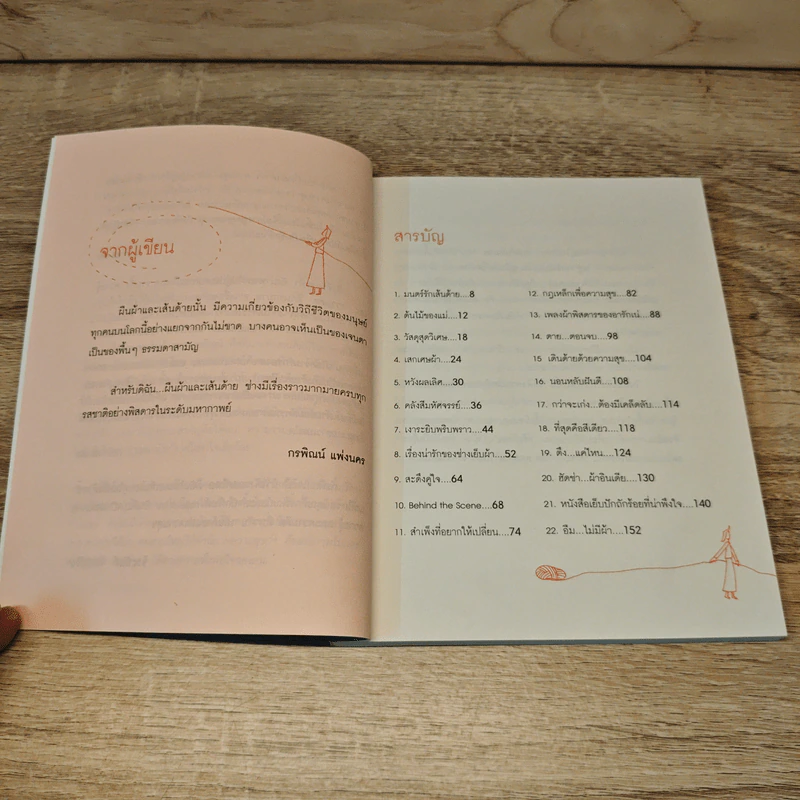 จากผู้เขียน
ผืนผ้าและเส้นด้ายนั้น มีความเกี่ยวข้องกับวิถีชีวิตของมนุษย์
ทุกคนบนโลกนี้อย่างแยกจากกันไม่ขาด บางคนอาจเห็นเป็นของเจนตา
เป็นของพื้นๆ ธรรมดาสามัญ
สำหรับดิฉัน...ผืนผ้าและเส้นด้าย ช่างมีเรื่องราวมากมายครบทุก
รสชาติอย่างพิสดารในระดับมหากาพย์
กรพิณน์ แพ่งนคร
สารบัญ
1. มนตร์รักเส้นด้าย....8
2. ต้นไม้ของแม่....12
3. วัสดุสุดวิเศษ....18
4. เสกเศษผ้า....24
5. หวังผลเลิศ....30
6. คลังสีมหัศจรรย์....36
7. เงาระยิบพริบพราว....44
8. เรื่องน่ารักของช่างเย็บผ้า....52
9. สะดึงคู่ใจ....64
10. Behind the Scene....68
11. สำเพ็งที่อยากให้เปลี่ยน....74
12. กฎเหล็กเพื่อความสุข....82
13. เพลงผ้าพิสดารของอารักเน่....88
14. ตาย...ตอนจบ....98
15 เดินด้ายด้วยความสุข....104
16. นอนหลับฝันดี....108
17. กว่าจะเก่ง...ต้องมีเคล็ดลับ....114
18. ที่สุดคือสีเดียว....118
19. ดึง...แค่ไหน....124
20. ฮัดช่า...ผ้าอินเดีย....130
21. หนังสือเย็บปักถักร้อยที่น่าพึงใจ....140
22. อืม...ไม่มีผ้า....152